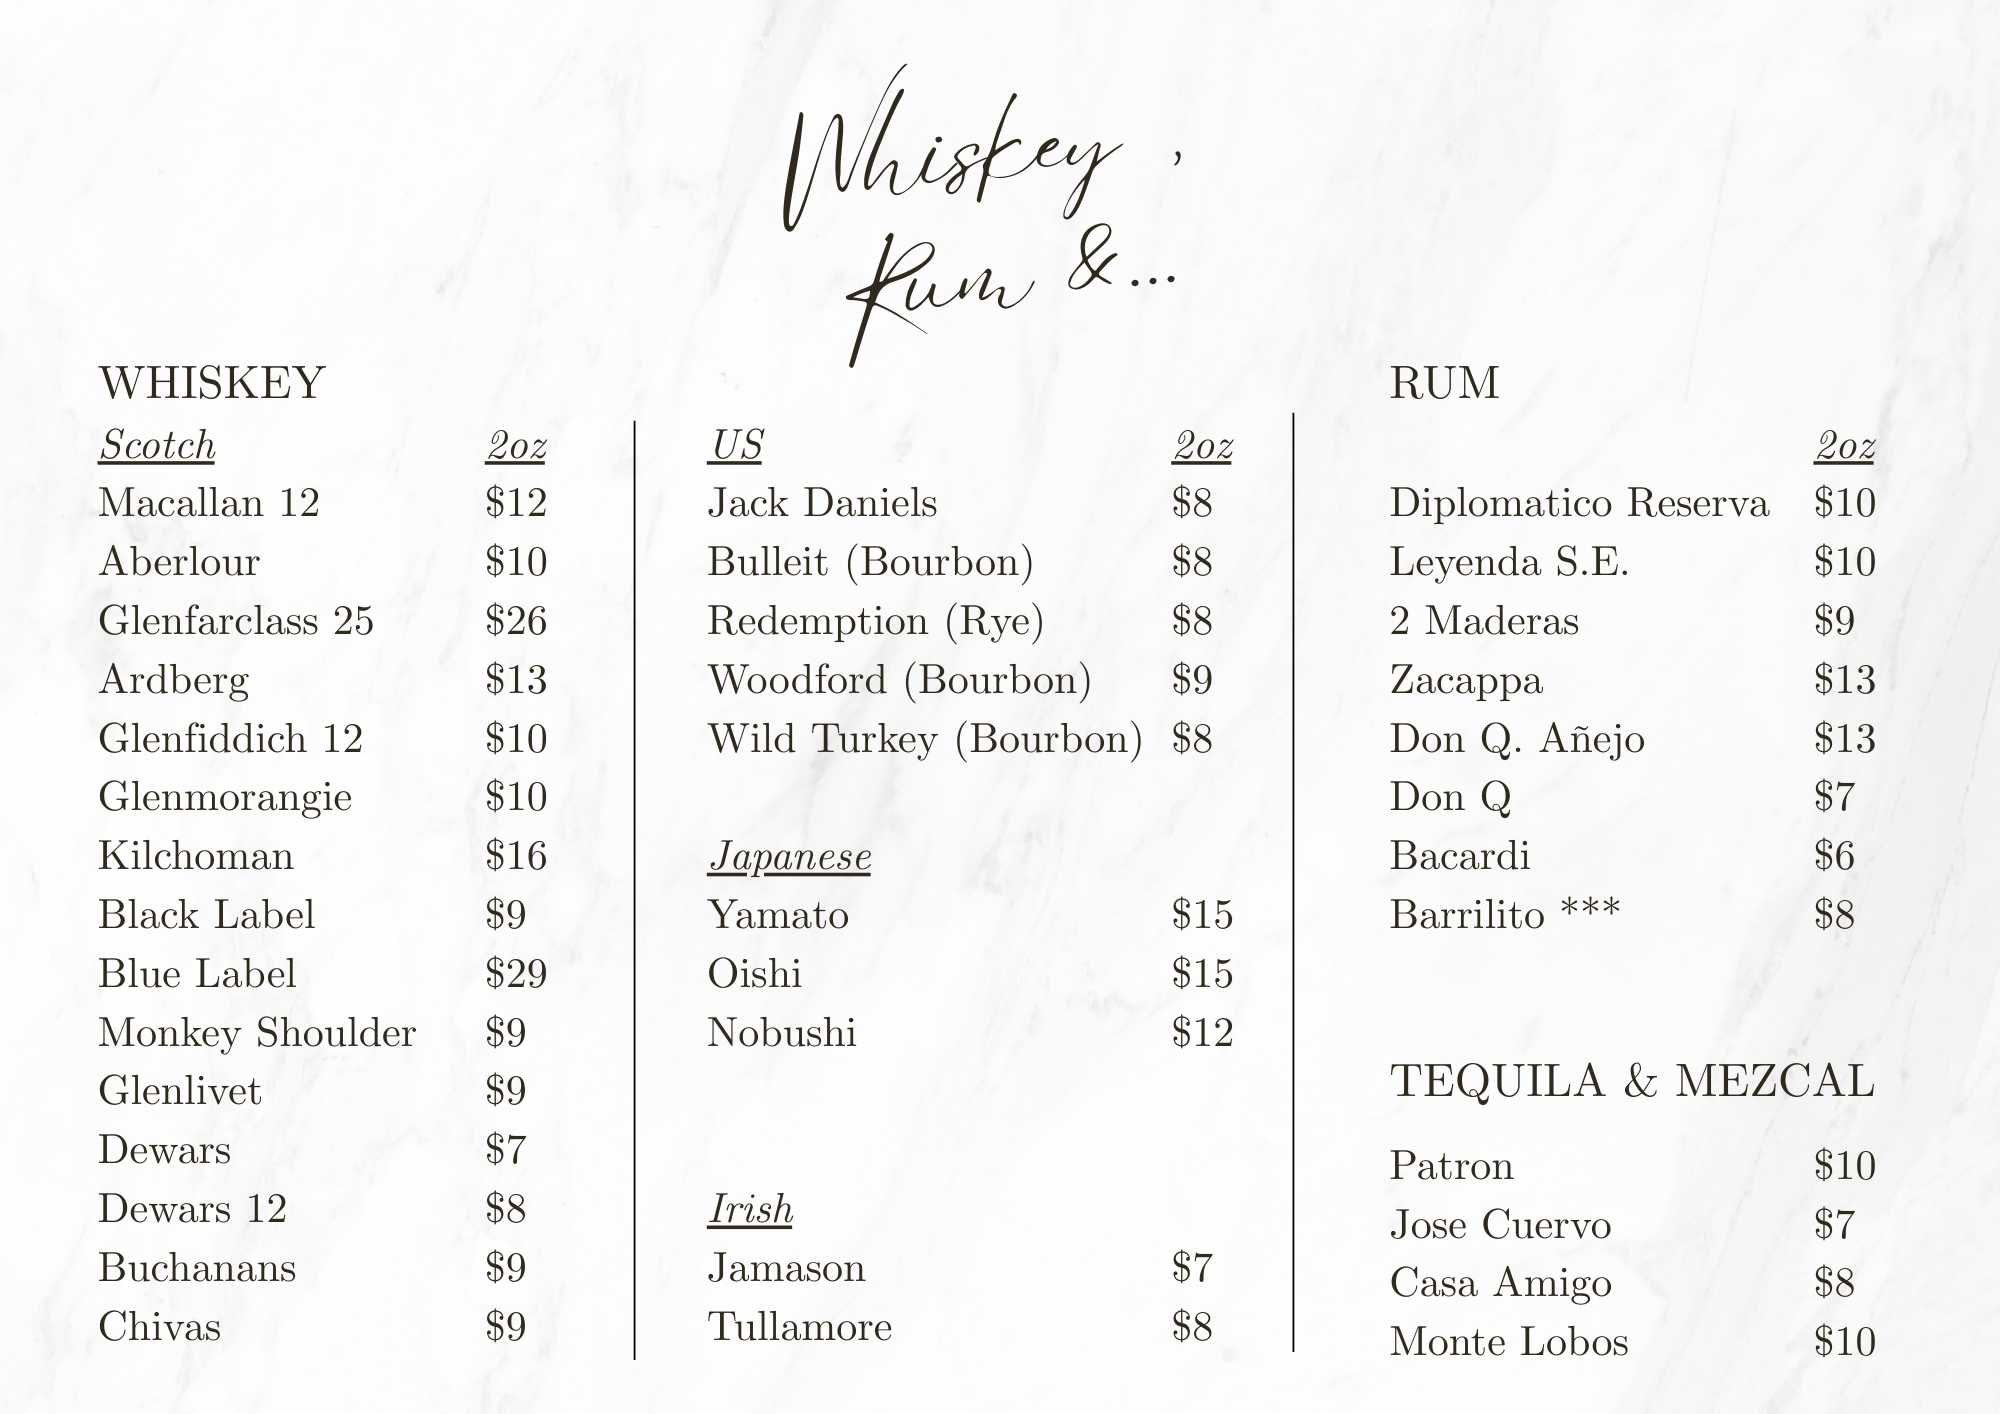 Whiskey ,
Rum &...
WHISKEY
Scotch 2oz
Macallan 12 $12
Aberlour $10
Glenfarclass 25 $26
Ardberg $13
Glenfiddich 12 $10
Glenmorangie $10
Kilchoman $16
Black Label $9
Blue Label $29
Monkey Shoulder $9
Glenlivet $9
Dewars $7
Dewars 12 $8
Buchanans $9
Chivas $9
US 2oz
Jack Daniels $8
Bulleit (Bourbon) $8
Redemption (Rye) $8
Woodford (Bourbon) $9
Wild Turkey (Bourbon) $8
Japanese
Yamato $15
Oishi $15
Nobushi $12
Irish
Jamason $7
Tullamore $8
RUM
2oz
Diplomatico Reserva $10
Leyenda S.E. $10
2 Maderas $9
Zacappa $13
Don Q. Añejo $13
Don Q $7
Bacardi $6
Barrilito *** $8
TEQUILA & MEZCAL
Patron $10
Jose Cuervo $7
Casa Amigo $8
Monte Lobos $10